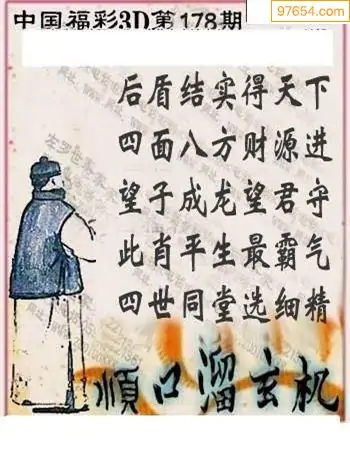 中国福彩3D第178期
97654.com
后盾结实得天下
四面八方财源进
望子成龙望君守
此肖平生最霸气
四世同堂选细精
顺口溜玄机